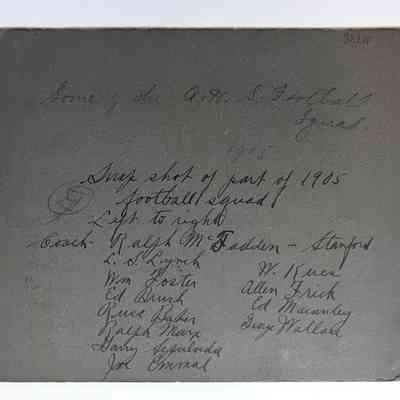 Some of the A.H.S. Football
Squad.
1905
Snap shot of part of 1905
football squad
Left to right
Coach - Ralph McFadden - Stanford
L. S. Lynch
Wm Foster
Ed Brush
Russ Baker
Ralph Marx
Harry Sepulveda
Joe
W.
Allen Frick
Ed Macauley
Wallace